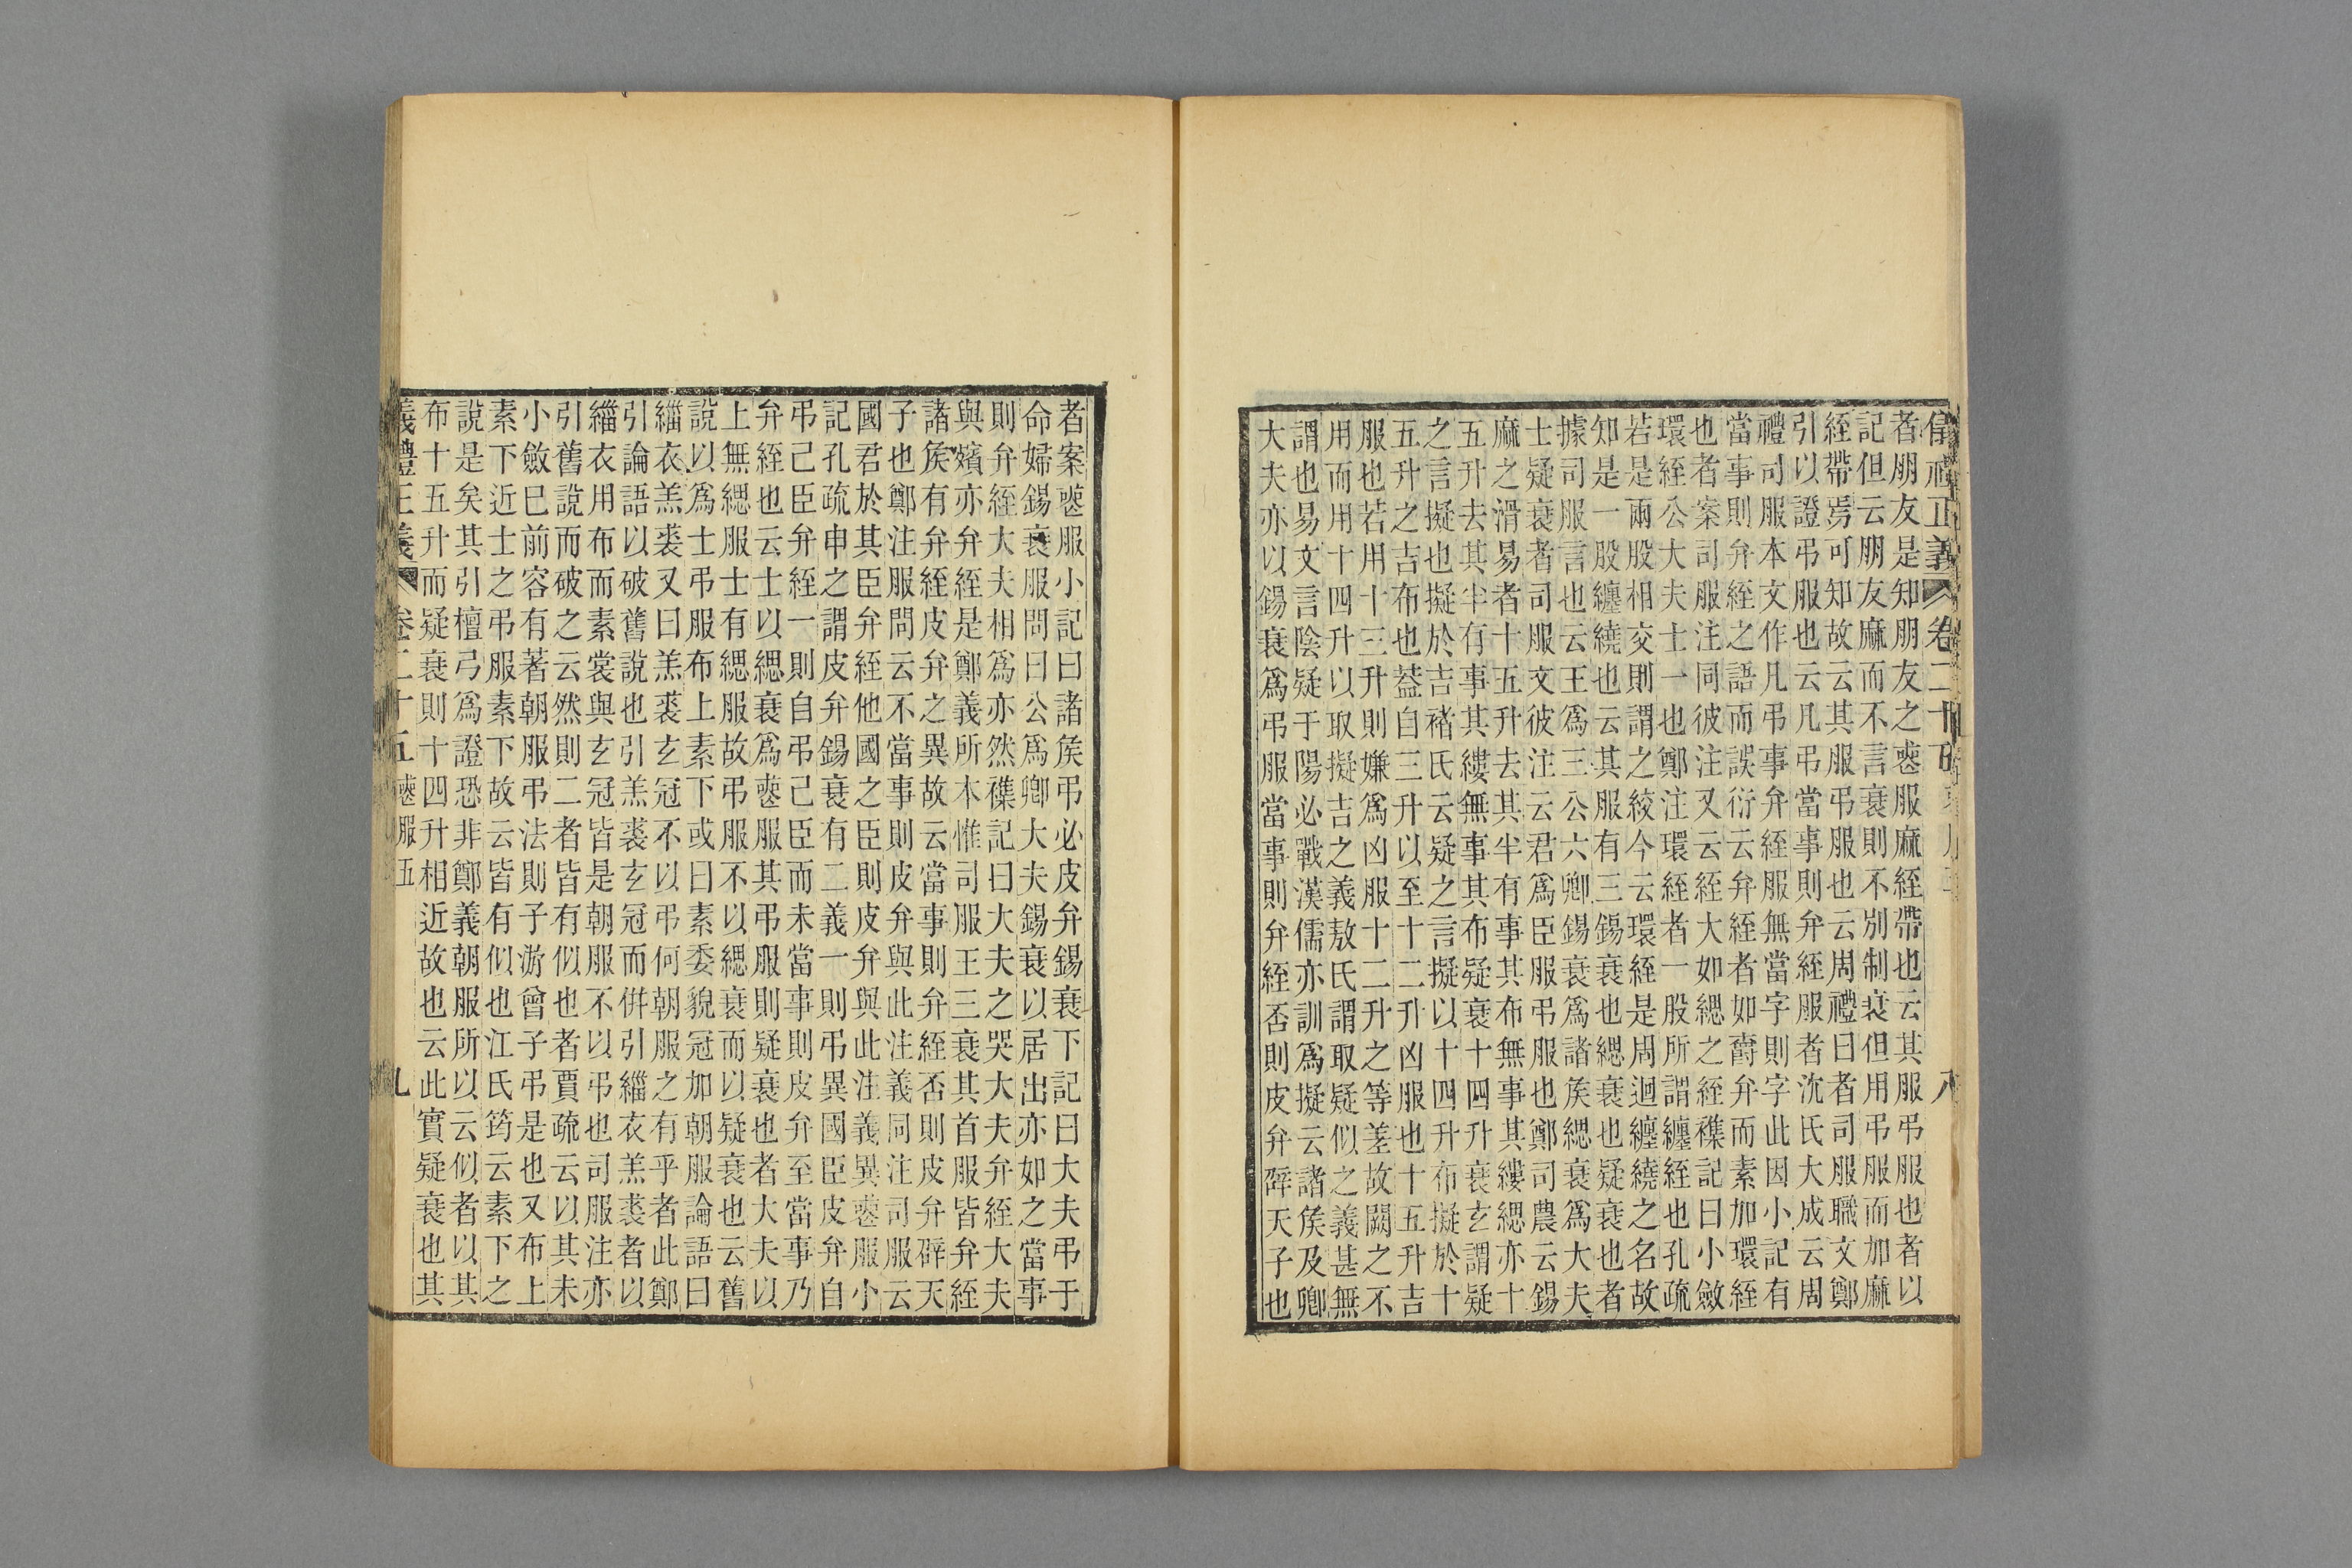 儀禮正義 卷二十五 八
者朋友是知朋友之䘮服麻絰帶也云其服弔服也者以
記但云朋友麻而不言衰則不別制衰但用弔服而加麻
絰帶焉可知故云其服弔服也云周禮曰者司服職文鄭
引以證弔服也云凡弔當事則弁絰服者沈氏大成云周
禮司服本文作凡弔事弁絰服無當字則字此因小記有
當事則弁絰之語而誤衍云弁絰者如爵弁而素加環絰
也者案司服注同彼注又云絰大如緦之絰襍記曰小斂
環絰公大夫士一也鄭注環絰者一股所謂纏絰也孔疏
若是兩股相交則謂之絞今云環絰是周迴纏繞之名故
知是一股纏繞也云其服有三錫衰也緦衰也疑衰也者
據司服言也云王爲三公六卿錫衰爲諸矦緦衰爲大夫
士疑衰者司服文彼注云君爲臣服弔服也鄭司農云錫
麻之滑易者十五升去其半有事其布無事其縷緦亦十
五升去其半有事其縷無事其布疑衰十四升衰玄謂疑
之言擬也擬於吉褚氏云疑之言擬以十四升布擬於十
五升之吉布也葢自三升以至十二升凶服也十五升吉
服也若用十三升則嫌爲凶服十二升之等差故闕之不
用而用十四升以取擬吉之義敖氏謂取疑似之義甚無
謂也易文言陰疑于陽必戰漢儒亦訓爲擬云諸矦及卿
大夫亦以錫衰爲弔服當事則弁絰否則皮弁辟天子也
者案䘮服小記曰諸矦弔必皮弁錫衰下記曰大夫弔于
命婦錫衰服問曰公爲卿大夫錫衰以居出亦如之當事
則弁絰大夫相爲亦然襍記曰大夫之哭大夫弁絰大夫
與殯亦弁絰是鄭義所本惟司服王三衰其首服皆弁絰
諸矦有弁絰皮弁之異故云當事則弁絰否則皮弁辟天
子也鄭注服問云不當事則皮弁與此注義同注司服云
國君於其臣弁絰他國之臣則皮弁與此注義異䘮服小
記孔疏申之謂皮弁錫衰有二義一則弔異國臣皮弁自
弔己臣弁絰一則自弔己臣而未當事則皮弁至當事乃
弁絰也云士以緦衰爲䘮服其弔服則疑衰也者大夫以
上無緦服士有緦服故弔服不以緦衰而以疑衰也云舊
說以爲士弔服布上素下或曰素委貌冠加朝服論語曰
緇衣羔裘又曰羔裘玄冠不以弔何朝服之有乎者此鄭
引論語以破舊說也引羔裘玄冠而倂引緇衣羔裘者以
緇衣用布而素裳與玄冠皆是朝服不以弔也司服注亦
引舊說而破之云然則二者皆有似也者賈疏云以其未
小斂已前容有著朝服弔法則子游曾子弔是也又布上
素下近士之弔服素下故云皆有似也江氏筠云素下之
說是矣其引檀弓爲證恐非鄭義朝服所以云似者以其
布十五升而疑衰則十四升相近故也云此實疑衰也其
義禮正義 卷二十五 䘮服五 九